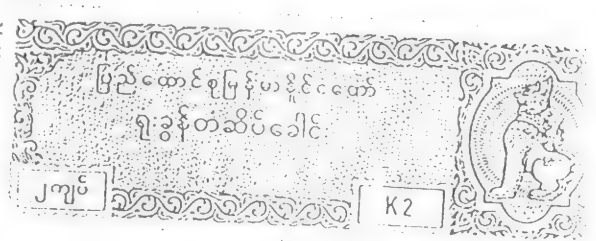 ပြည်ထောင်စုမြန်မာနိုင်ငံတော်
ရုံးခွန်တံဆိပ်ခေါင်း
၂ကျပ်
K2